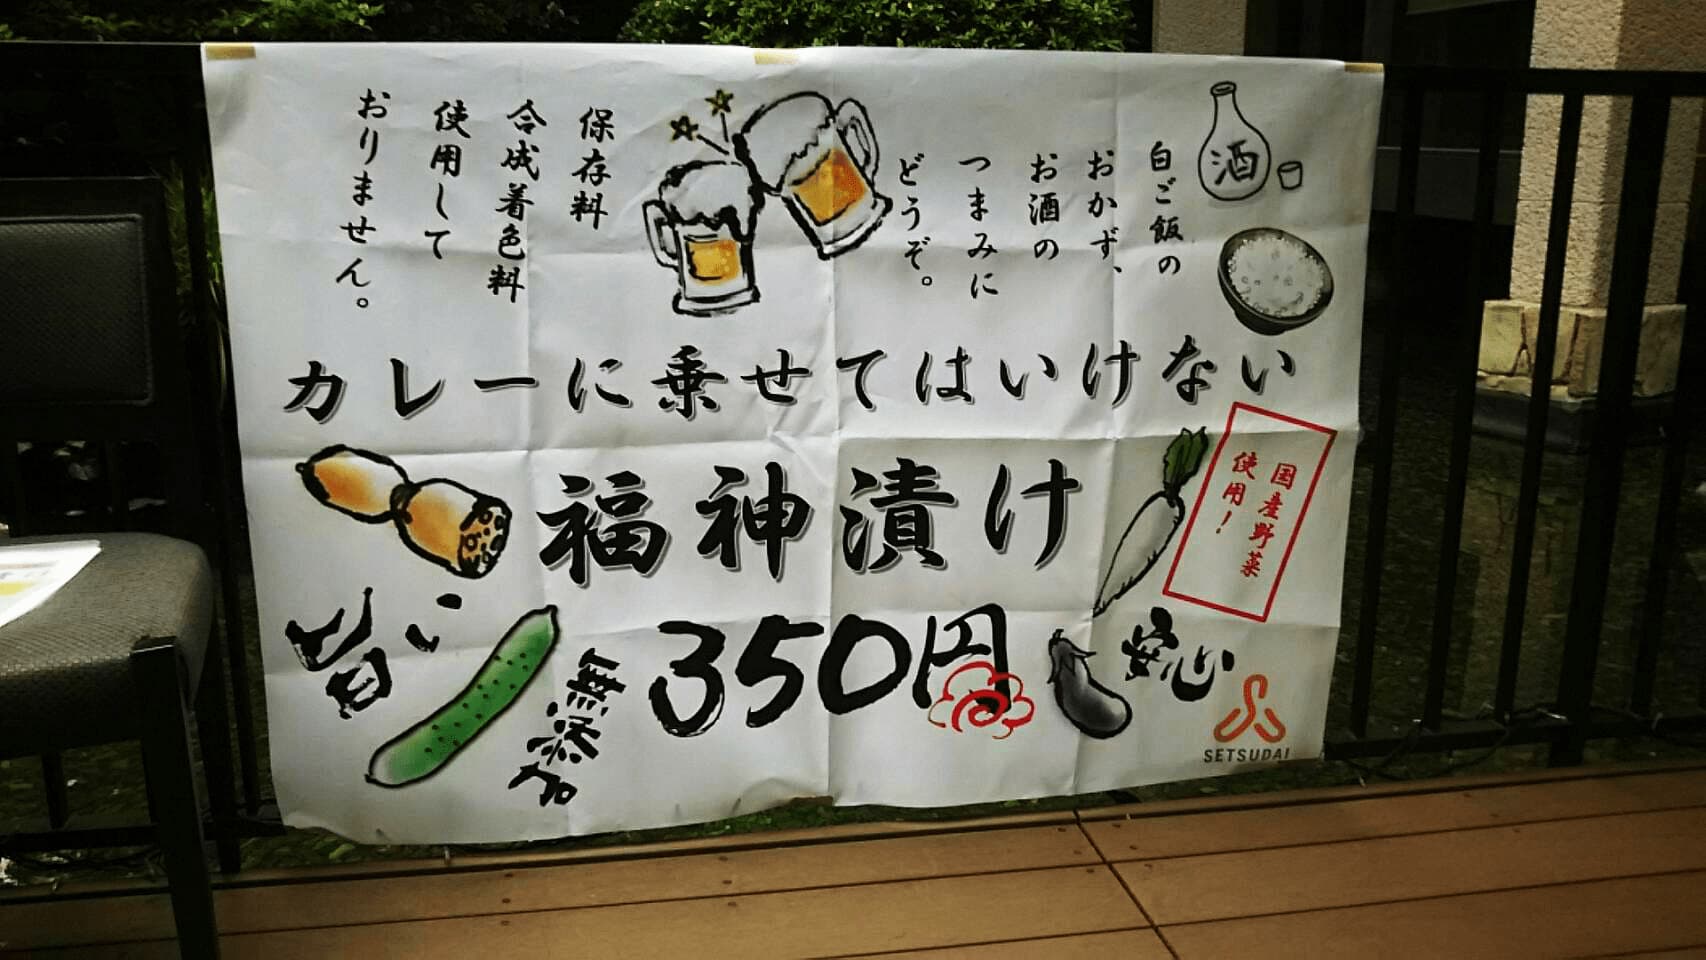 酒
白ご飯の
おかず、
お酒の
つまみに
どうぞ。
保存料
合成着色料
使用して
おりません。
カレーに乗せてはいけない
福神漬け
国産野菜
使用！
350円
旨い
無添加
安心
SETSUDAI